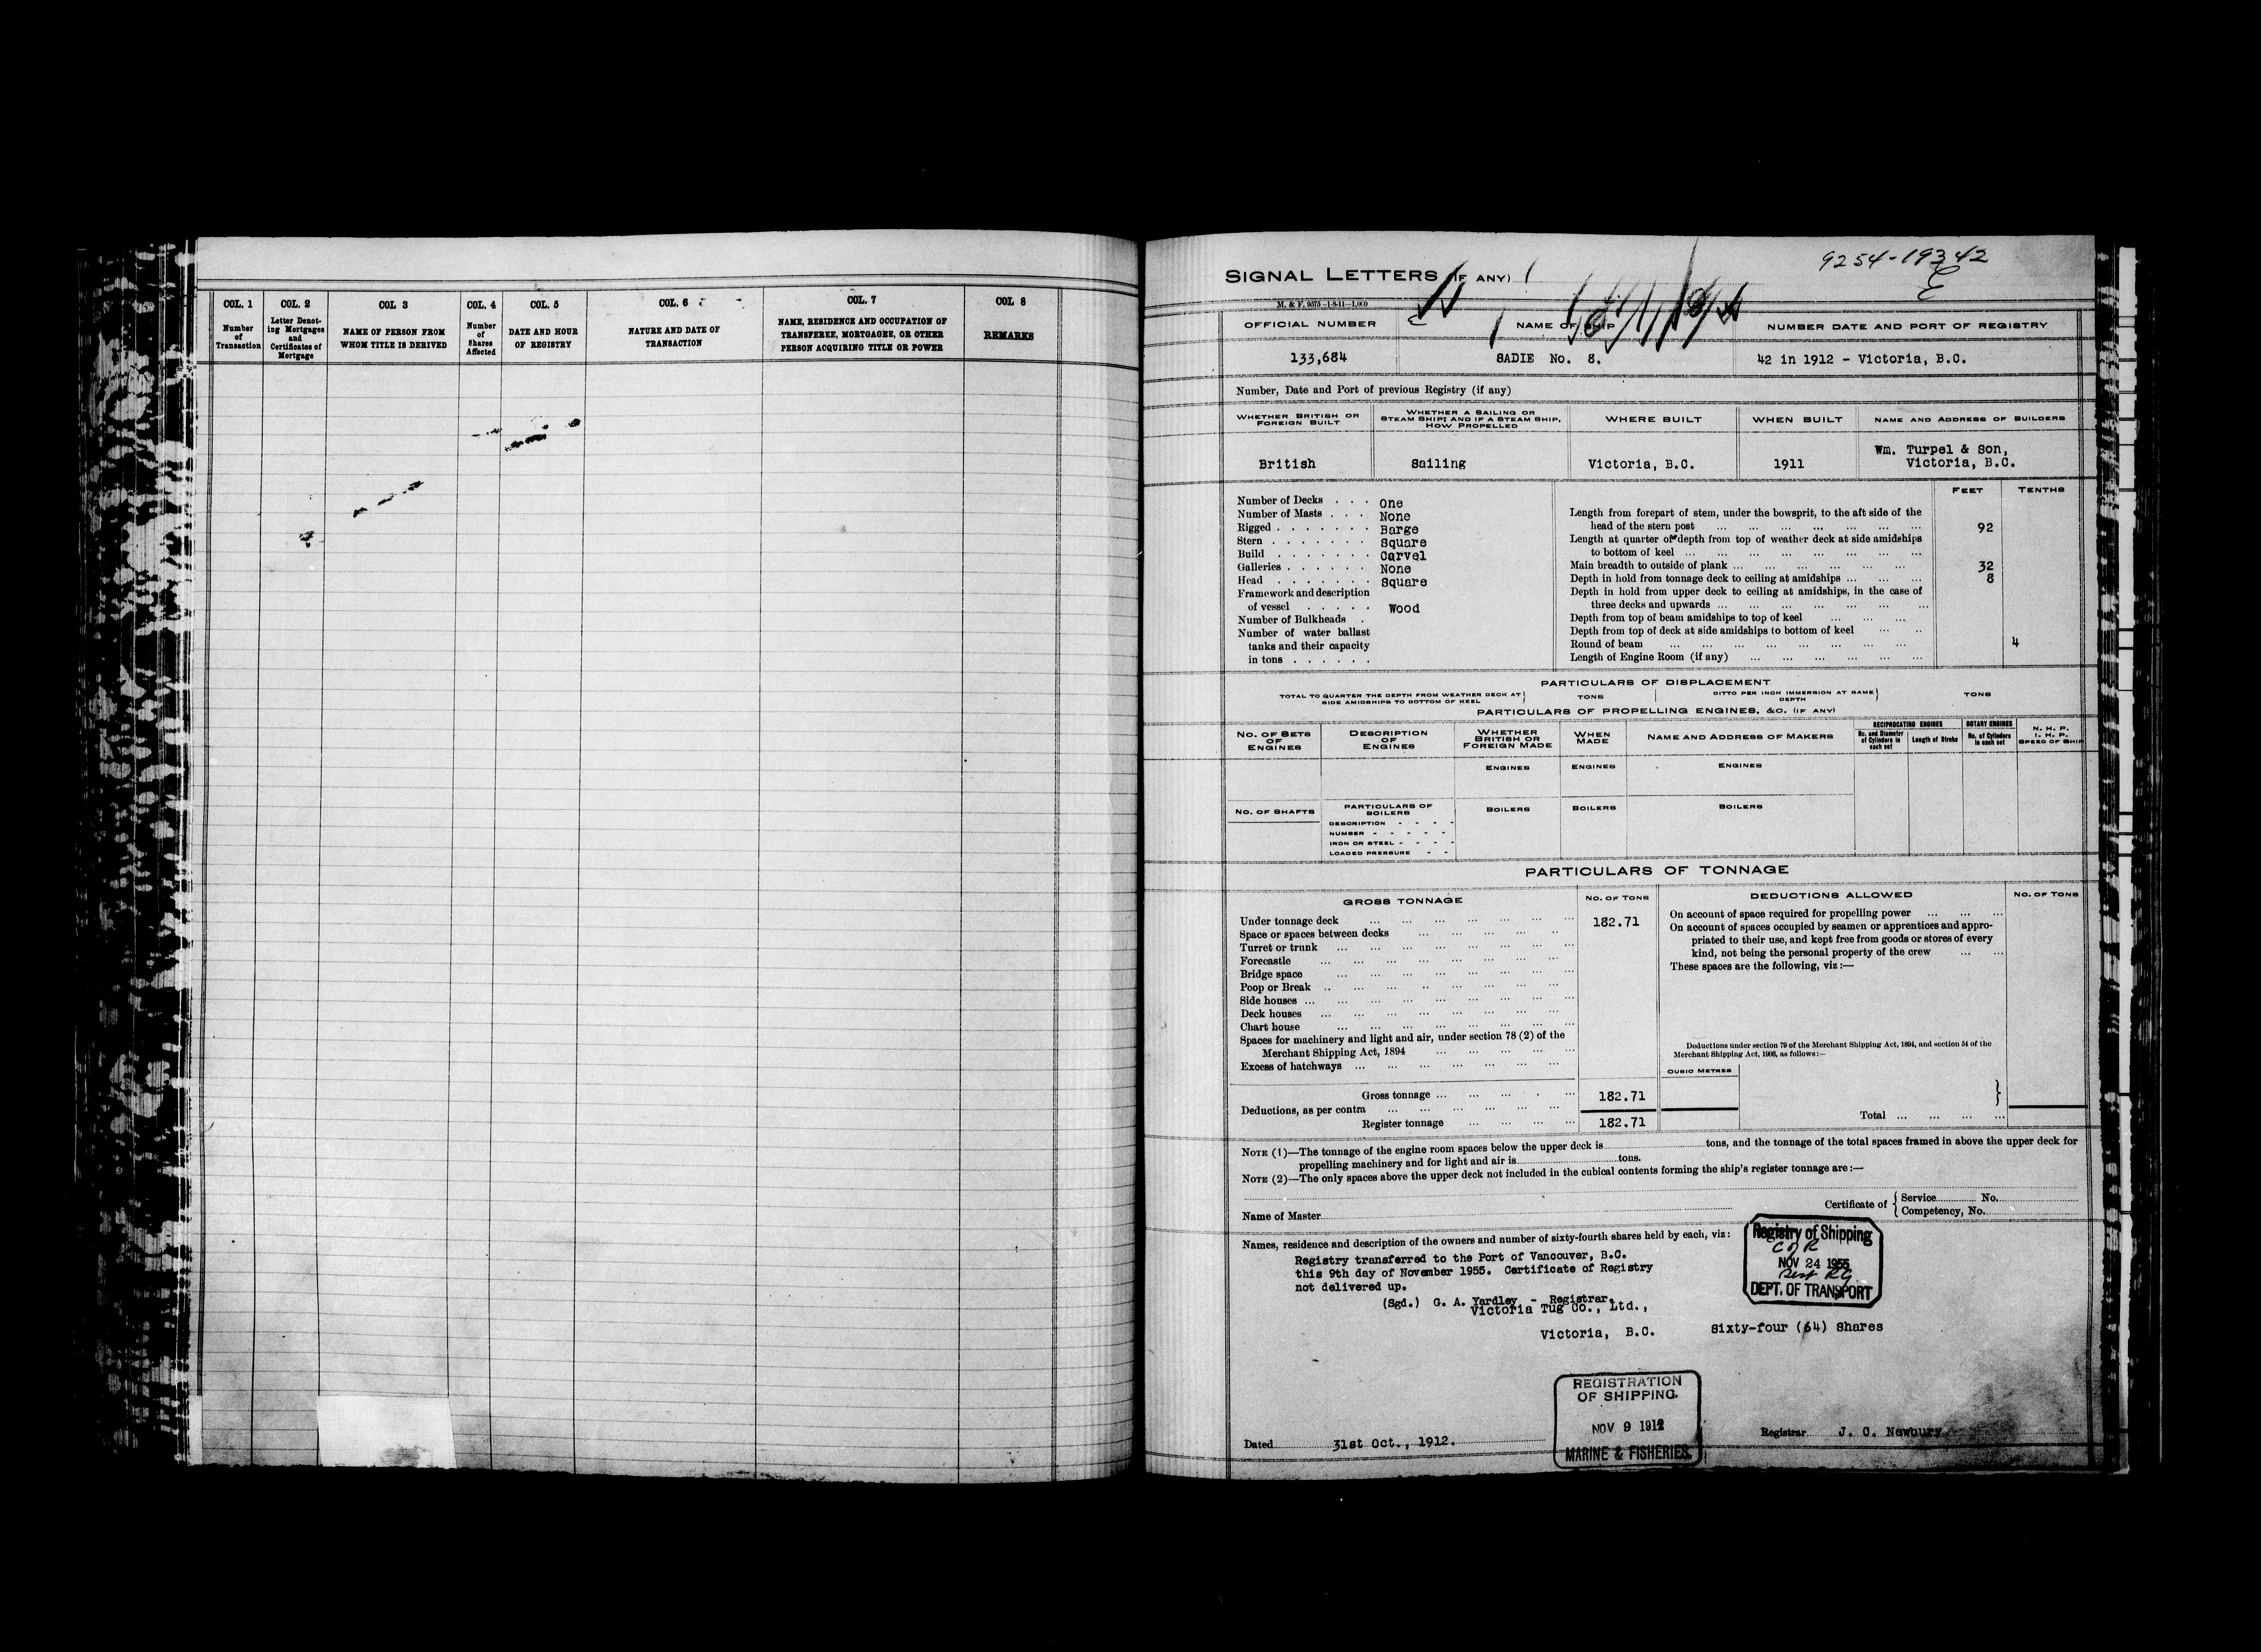 COL. 1
Number
of
Transaction
COL. 2
Letter Denot-
ing Mortgages
and
Certificates of
Mortgage
COL. 3
NAME OF PERSON FROM
WHOM TITLE IS DERIVED
COL. 4
Number
of
Shares
Affected
COL. 5
DATE AND HOUR
OF REGISTRY
COL. 6
NATURE AND DATE OF
TRANSACTION
COL. 7
NAME, RESIDENCE AND OCCUPATION OF
TRANSFEREE, MORTGAGEE, OR OTHER
PERSON ACQUIRING TITLE OR POWER
COL 8
REMARKS
9254-19342
E
SIGNAL LETTERS (IF ANY)
M. & F. 9375-1-8-11-1,000
OFFICIAL NUMBER
NAME OF SHIP
NUMBER DATE AND PORT OF REGISTRY
133,684
SADIE No. 8.
42 in 1912 - Victoria, B.C.
Number, Date and Port of previous Registry (if any)
WHETHER BRITISH OR
FOREIGN BUILT
WHETHER A SAILING OR
STEAM SHIP; AND IF A STEAM SHIP,
HOW PROPELLED
WHERE BUILT
WHEN BUILT
NAME AND ADDRESS OF BUILDERS
British
Sailing
Victoria, B.C.
1911
Wm. Turpel & Son,
Victoria, B.C.
Number of Decks . . . One
Number of Masts . . . None
Rigged . . . . . . . Barge
Stern . . . . . . . Square
Build . . . . . . . Carvel
Galleries . . . . . . None
Head . . . . . . . Square
Framework and description
of vessel . . . . . Wood
Number of Bulkheads .
Number of water ballast
tanks and their capacity
in tons . . . . . .
FEET TENTHS
Length from forepart of stem, under the bowsprit, to the aft side of the
head of the stern post 92
Length at quarter of depth from top of weather deck at side amidships
to bottom of keel
Main breadth to outside of plank 32
Depth in hold from tonnage deck to ceiling at amidships 8
Depth in hold from upper deck to ceiling at amidships, in the case of
three decks and upwards
Depth from top of beam amidships to top of keel
Depth from top of deck at side amidships to bottom of keel
Round of beam 4
Length of Engine Room (if any)
PARTICULARS OF DISPLACEMENT
TOTAL TO QUARTER THE DEPTH FROM WEATHER DECK AT
SIDE AMIDSHIPS TO BOTTOM OF KEEL
TONS
DITTO PER INCH IMMERSION AT SAME
DEPTH
TONS
PARTICULARS OF PROPELLING ENGINES, &C. (IF ANY)
NO. OF SETS
OF
ENGINES
DESCRIPTION
OF
ENGINES
WHETHER
BRITISH OR
FOREIGN MADE
WHEN
MADE
NAME AND ADDRESS OF MAKERS
RECIPROCATING ENGINES
No. and Diameter
of Cylinders in
each set
Length of Stroke
ROTARY ENGINES
No. of Cylinders
in each set
N. H. P.
I. H. P.
SPEED OF SHIP
ENGINES
ENGINES
ENGINES
NO. OF SHAFTS
PARTICULARS OF
BOILERS
DESCRIPTION - - - -
NUMBER - - - - -
IRON OR STEEL - - - -
LOADED PRESSURE - -
BOILERS
BOILERS
BOILERS
PARTICULARS OF TONNAGE
GROSS TONNAGE
NO. OF TONS
Under tonnage deck 182.71
Space or spaces between decks
Turret or trunk
Forecastle
Bridge space
Poop or Break
Side houses
Deck houses
Chart house
Spaces for machinery and light and air, under section 78 (2) of the
Merchant Shipping Act, 1894
Excess of hatchways
Gross tonnage 182.71
Deductions, as per contra
Register tonnage 182.71
DEDUCTIONS ALLOWED
NO. OF TONS
On account of space required for propelling power
On account of spaces occupied by seamen or apprentices and appro-
priated to their use, and kept free from goods or stores of every
kind, not being the personal property of the crew
These spaces are the following, viz :—
Deductions under section 79 of the Merchant Shipping Act, 1894, and section 54 of the
Merchant Shipping Act, 1906, as follows:—
CUBIC METRES
Total
NOTE (1)—The tonnage of the engine room spaces below the upper deck is tons, and the tonnage of the total spaces framed in above the upper deck for
propelling machinery and for light and air is tons.
NOTE (2)—The only spaces above the upper deck not included in the cubical contents forming the ship's register tonnage are :—
Name of Master
Certificate of { Service No.
Competency, No.
Names, residence and description of the owners and number of sixty-fourth shares held by each, viz :
Registry transferred to the Port of Vancouver, B.C.
this 9th day of November 1955. Certificate of Registry
not delivered up.
(Sgd.) G. A. Yardley - Registrar.
Victoria Tug Co., Ltd.,
Victoria, B.C.
Sixty-four (64) Shares
Registry of Shipping
C of R
NOV 24 1955
DEPT. OF TRANSPORT
REGISTRATION
OF SHIPPING.
NOV 9 1912
MARINE & FISHERIES.
Dated 31st Oct., 1912.
Registrar J. C. Newbury